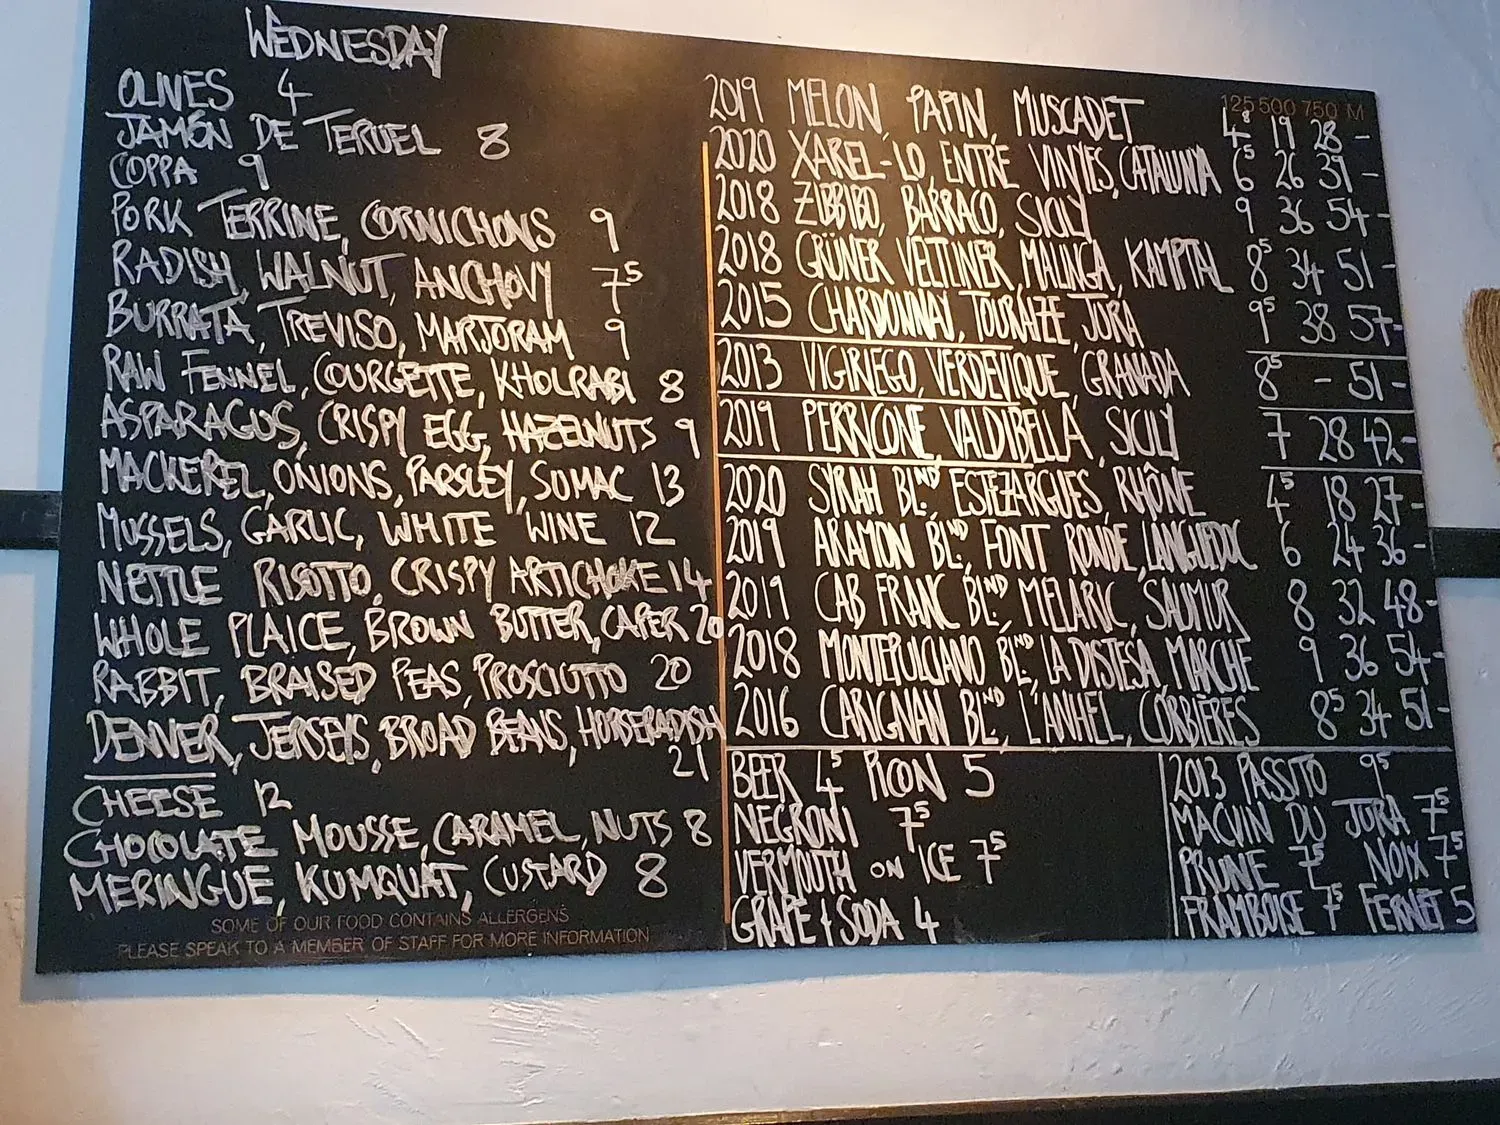 WEDNESDAY
OLIVES 4
JAMÓN DE TERUEL 8
COPPA 9
PORK TERRINE, CORNICHONS 9
RADISH, WALNUT, ANCHOVY 7⁵
BURRATA, TREVISO, MARJORAM 9
RAW FENNEL, COURGETTE, KHOLRABI 8
ASPARAGUS, CRISPY EGG, HAZELNUTS 9
MACKEREL, ONIONS, PARSLEY, SUMAC 13
MUSSELS, GARLIC, WHITE WINE 12
NETTLE RISOTTO, CRISPY ARTICHOKE 14
WHOLE PLAICE, BROWN BUTTER, CAPER 20
RABBIT, BRAISED PEAS, PROSCIUTTO 20
DENVER, JERSEYS, BROAD BEANS, HORSERADISH
21
CHEESE 12
CHOCOLATE MOUSSE, CARAMEL, NUTS 8
MERINGUE, KUMQUAT, CUSTARD 8
SOME OF OUR FOOD CONTAINS ALLERGENS
PLEASE SPEAK TO A MEMBER OF STAFF FOR MORE INFORMATION
125 500 750 M
2019 MELON, PAPIN, MUSCADET 4⁸ 19 28 -
2020 XAREL-LO, ENTRE VINYES, CATALUNYA 6⁵ 26 39 -
2018 ZIBIBBO, BARRACO, SICILY 9 36 54 -
2018 GRÜNER VELTLINER, MALINGA, KAMPTAL 8⁵ 34 51 -
2015 CHARDONNAY, TOURAIZE, JURA 9⁵ 38 57 -
2013 VIGIRIEGO, VERDEVIQUE, GRANADA 8⁵ - 51 -
2019 PERRICONE, VALDIBELLA, SICILY 7 28 42 -
2020 SYRAH BLND, ESTEZARGUES, RHÔNE 4⁵ 18 27 -
2019 ARAMON BLND, FONT RONDE, LANGUEDOC 6 24 36 -
2019 CAB FRANC BLND, MELARIC, SAUMUR 8 32 48 -
2018 MONTEPULCIANO BLND, LA DISTESA, MARCHE 9 36 54 -
2016 CARIGNAN BLND, L'ANHEL, CORBIÈRES 8⁵ 34 51 -
BEER 4⁵ PICON 5
NEGRONI 7⁵
VERMOUTH ON ICE 7⁵
GRAPE + SODA 4
2013 PASSITO 9⁵
MACVIN DU JURA 7⁵
PRUNE 7⁵ NOIX 7⁵
FRAMBOISE 7⁵ FERNET 5